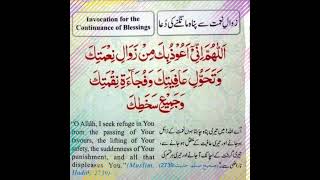 Invocation for the
Continuance of Blessings
زوال نعمت سے پناہ مانگنے کی دُعا
اَللّٰهُمَّ اِنِّىْ اَعُوْذُ بِكَ مِنْ زَوَالِ نِعْمَتِكَ
وَتَحَوُّلِ عَافِيَتِكَ وَفُجَاءَةِ نِقْمَتِكَ
وَجَمِيْعِ سَخَطِكَ
"O Allâh, I seek refuge in You
from the passing of Your
favours, the lifting of Your
safety, the suddenness of Your
punishment, and all that
displeases You." (Muslim,
Hadith: 2739)